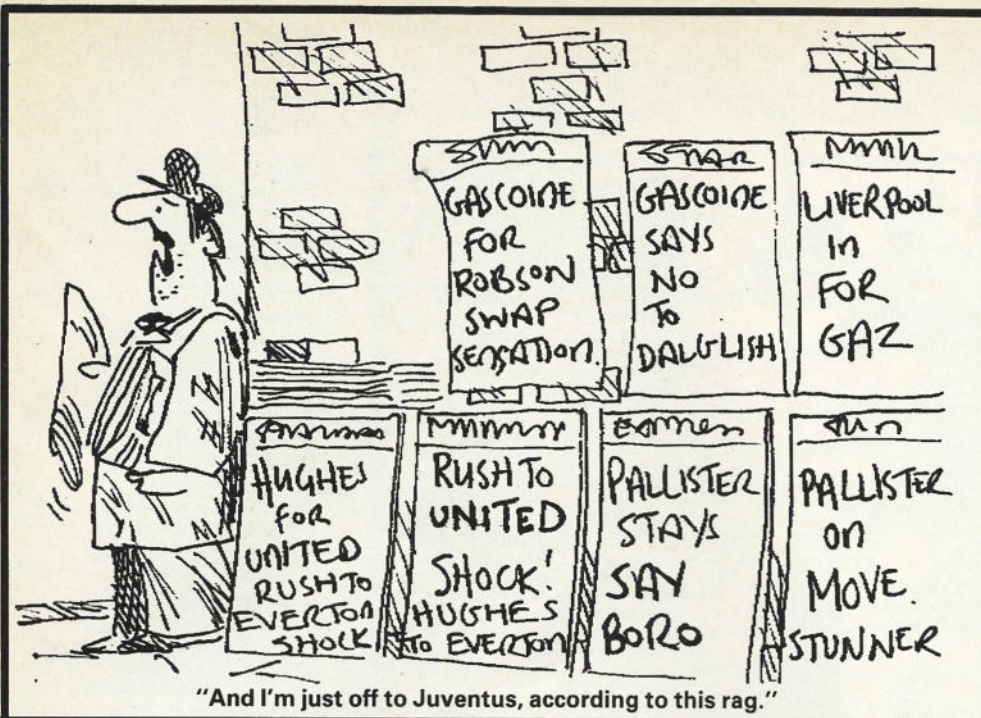 GASCOINE
FOR
ROBSON
SWAP
SENSATION.
STAR
GASCOINE
SAYS
NO
TO
DALGLISH
LIVERPOOL
In
FOR
GAZ
HUGHES
FOR
UNITED
RUSH TO
EVERTON
SHOCK
RUSH TO
UNITED
SHOCK!
HUGHES
TO EVERTON
PALLISTER
STAYS
SAY
BORO
PALLISTER
on
MOVE.
STUNNER
"And I'm just off to Juventus, according to this rag."